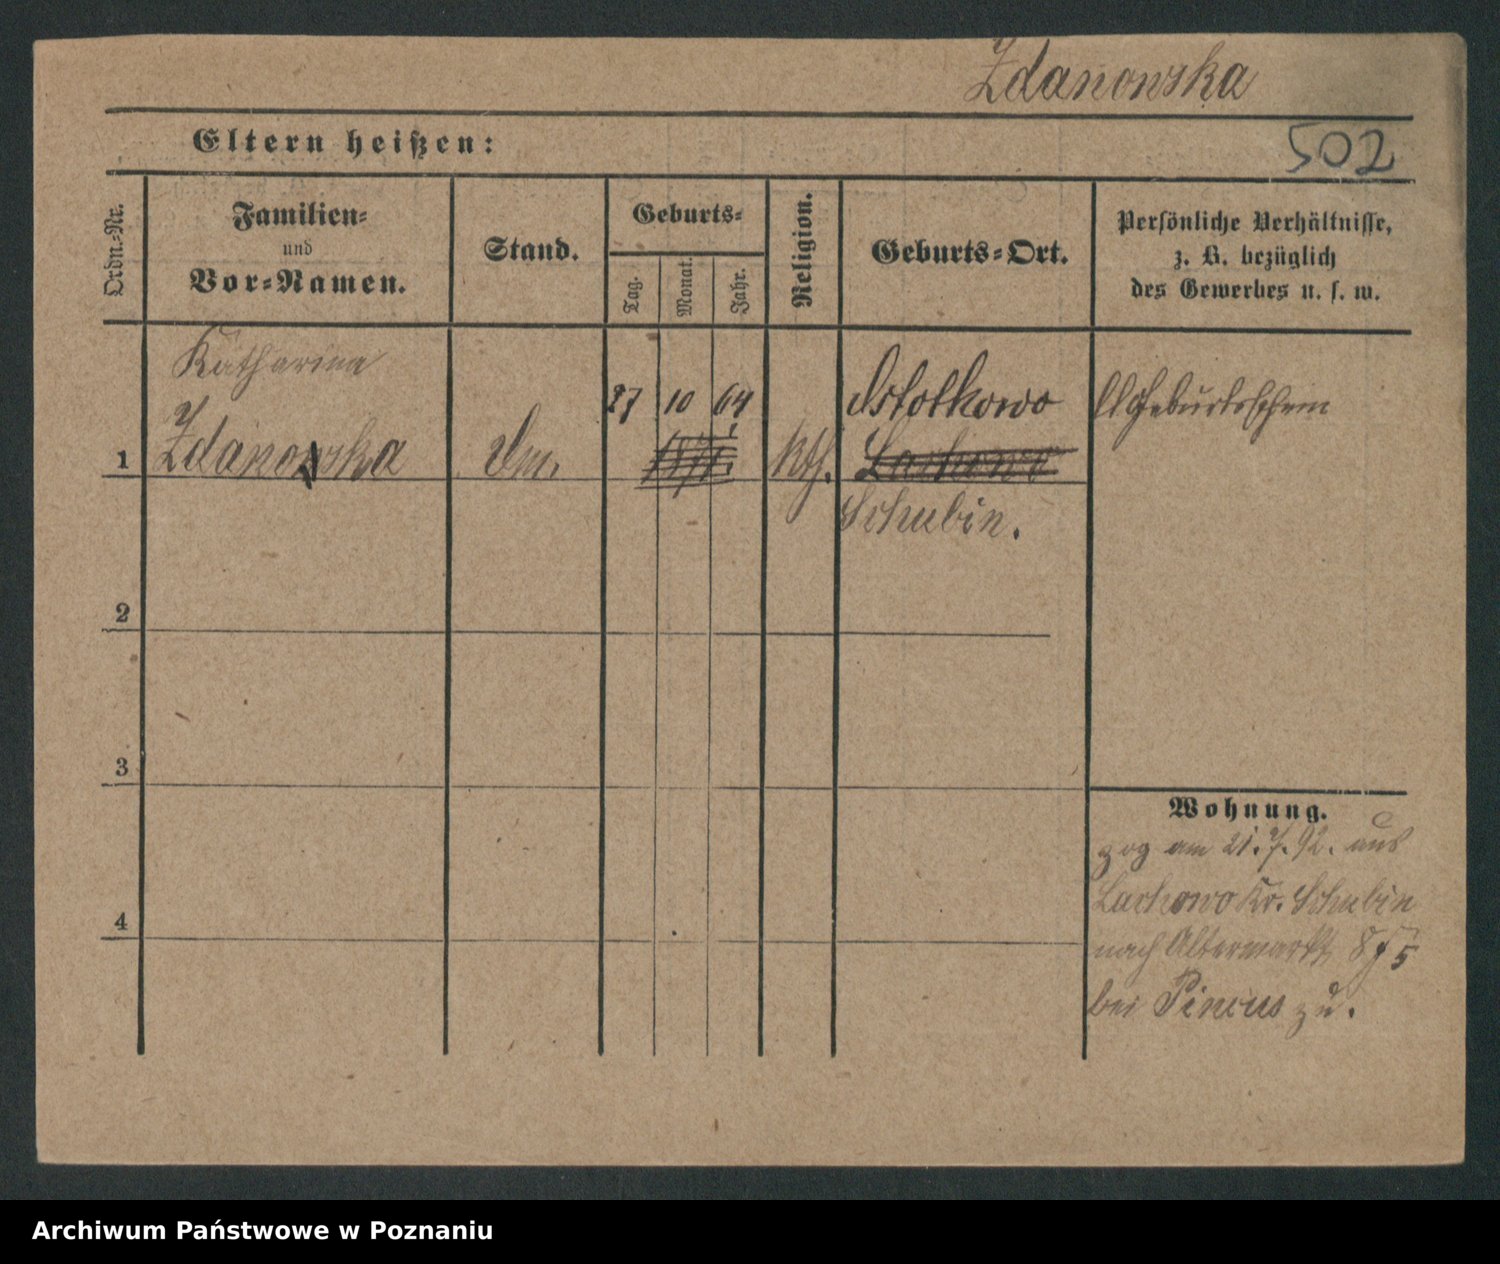 Zdanowska
Eltern heißen:
502
Ordn.-Nr.
Familien-
und
Vor-Namen.
Stand.
Geburts-
Tag.
Monat.
Jahr.
Religion.
Geburts-Ort.
Persönliche Verhältnisse,
z. B. bezüglich
des Gewerbes u. s. w.
Katharina
27 10 64
Geburtsschein
1 Zdanowska
Kth.
Schubin.
2
3
4
Wohnung.
zog am 21.7.92. aus
Lachowo Kr. Schubin
nach Altermarkt
bei Pincus zu.
Archiwum Państwowe w Poznaniu